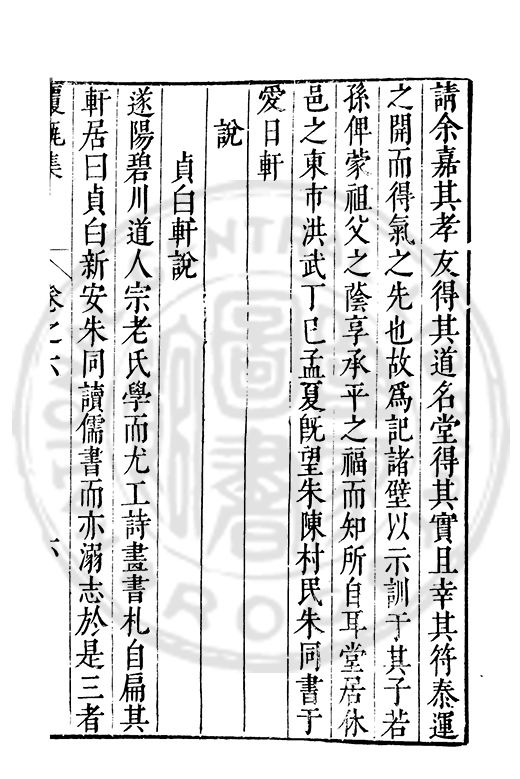 請余嘉其孝友得其道名堂得其實且幸其符泰運
之開而得氣之先也故爲記諸壁以示訓于其子若
孫俾蒙祖父之蔭享承平之福而知所自耳堂居休
邑之東市洪武丁巳孟夏旣望朱陳村民朱同書于
愛日軒
說
貞白軒說
遂陽碧川道人宗老氏學而尤工詩畫書札自扁其
軒居曰貞白新安朱同讀儒書而亦溺志於是三者
覆瓿集
卷之六
六